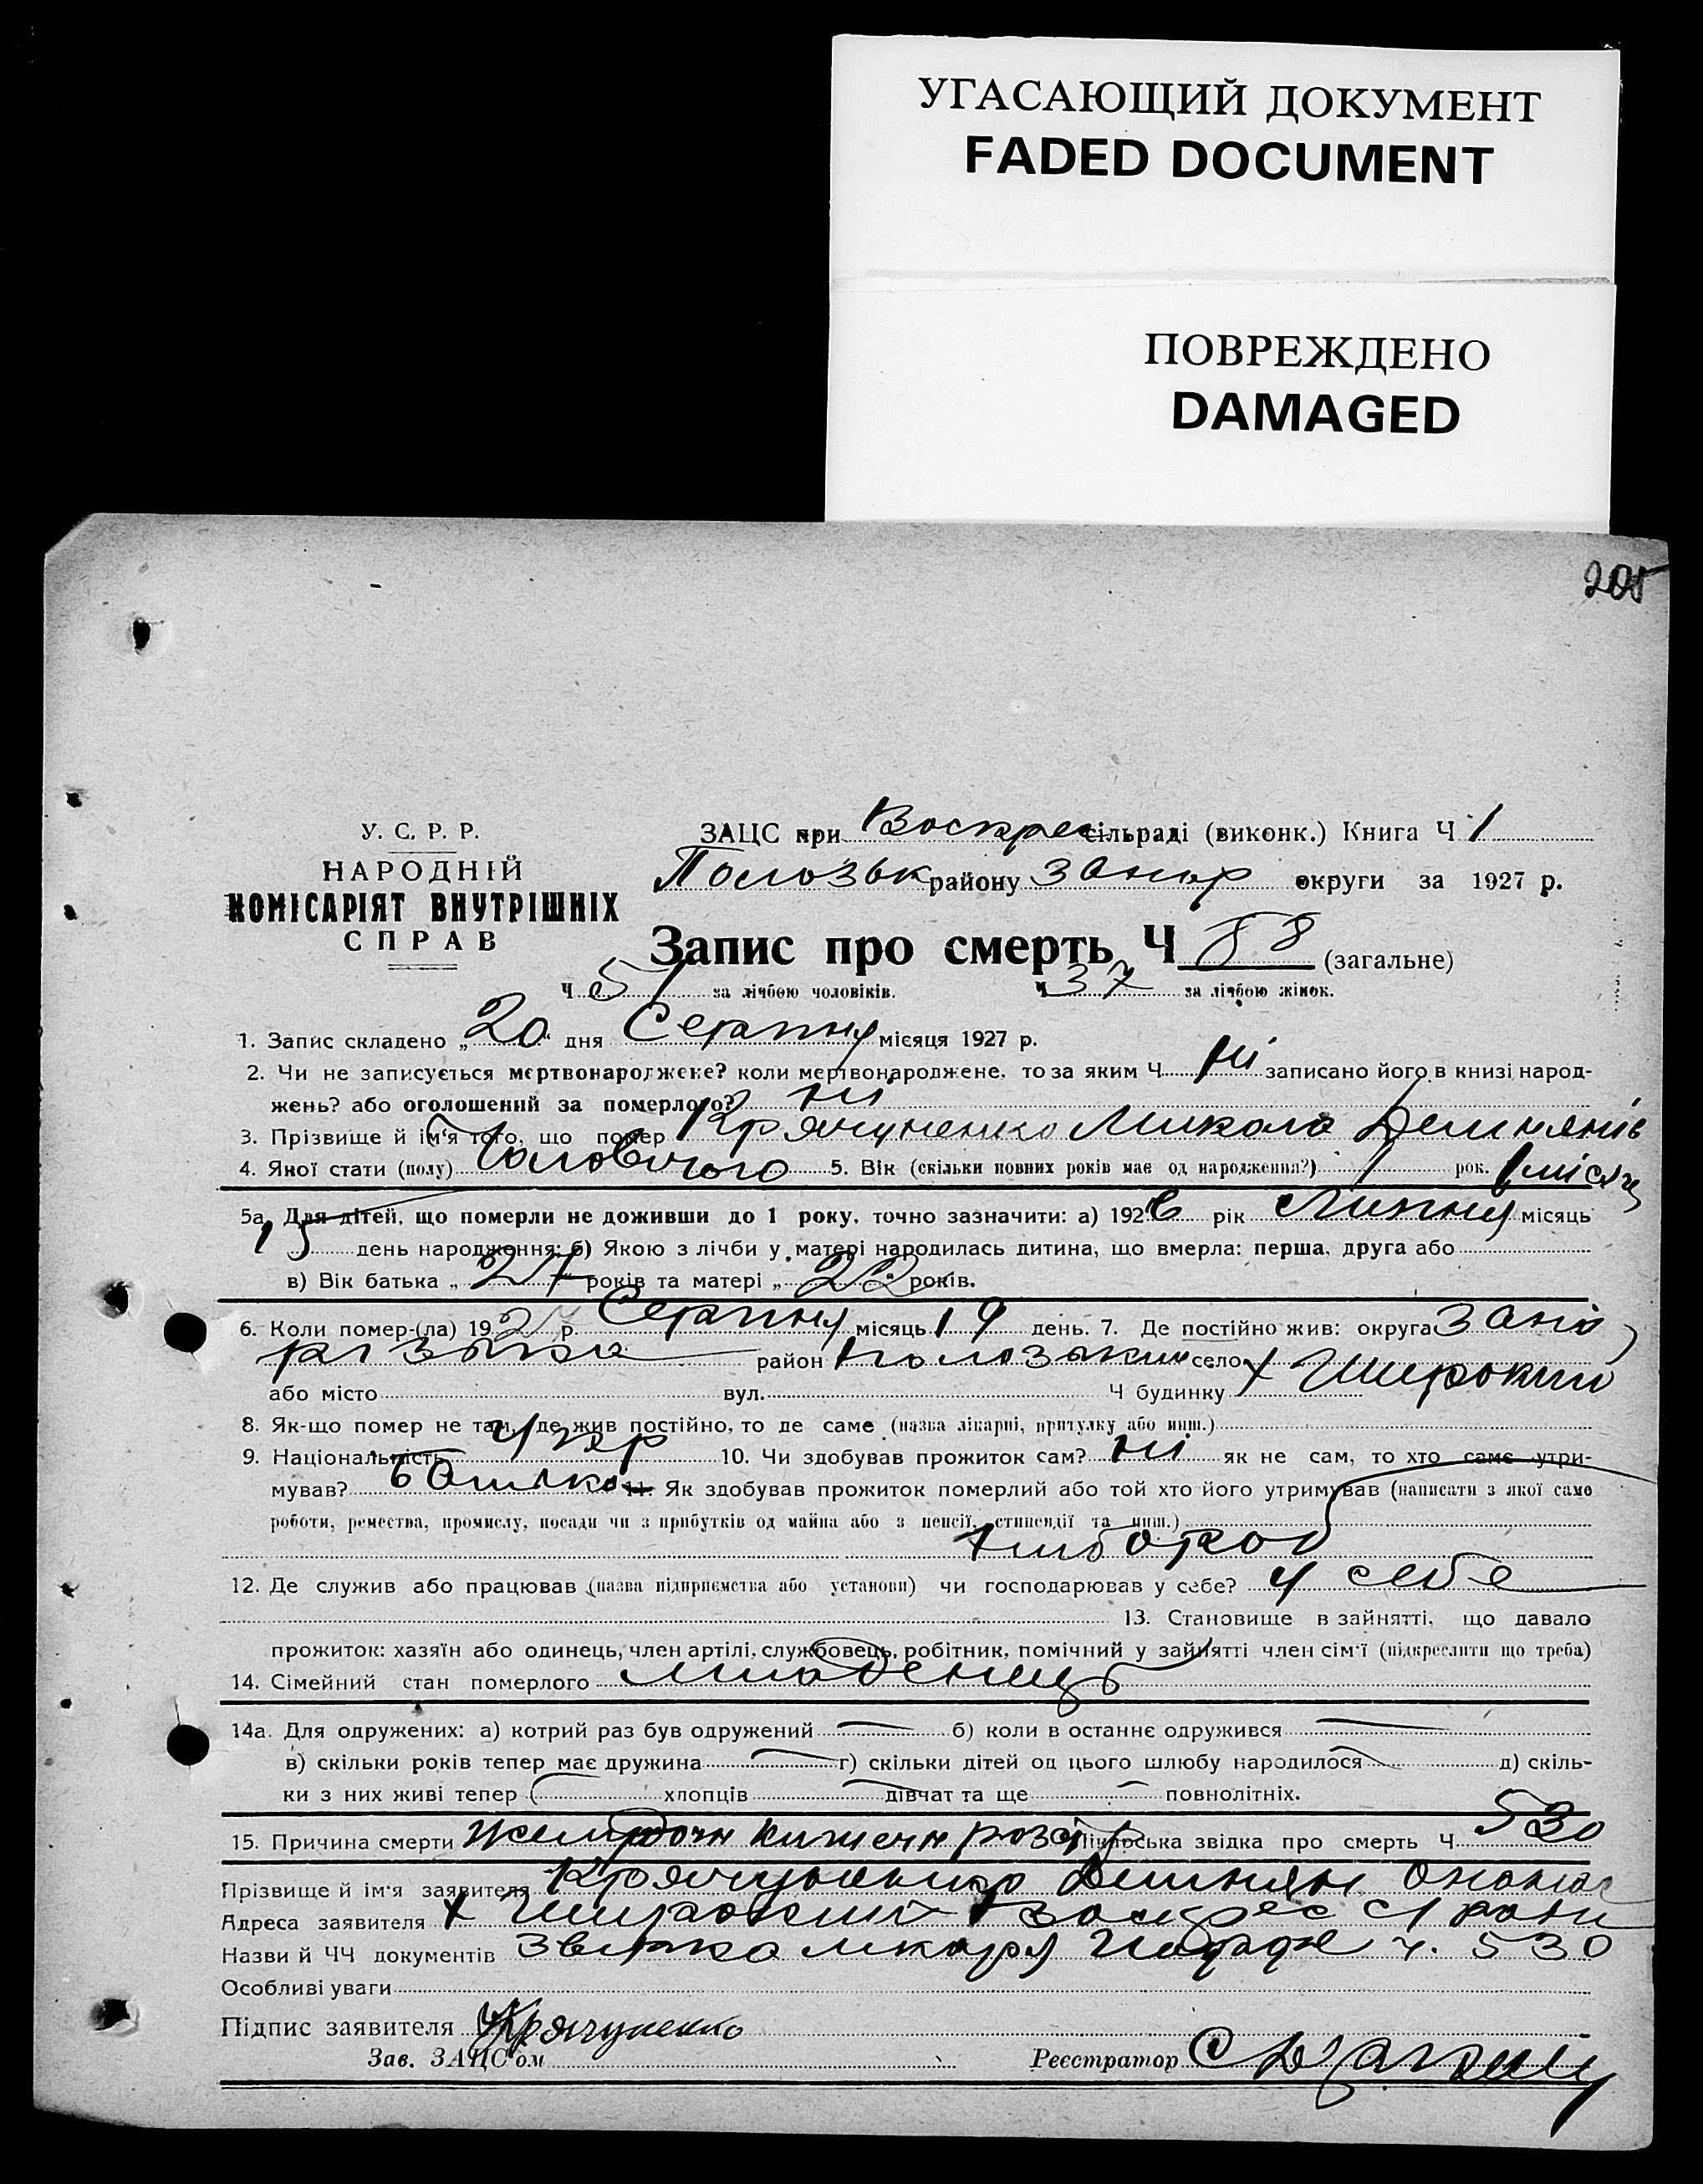 УГАСАЮЩИЙ ДОКУМЕНТ
FADED DOCUMENT
ПОВРЕЖДЕНО
DAMAGED
205
У. С. Р. Р.
НАРОДНІЙ
КОМІСАРІЯТ ВНУТРІШНІХ
СПРАВ
ЗАЦС при Воскрес сільраді (виконк.) Книга Ч 1
Пологзьк району Запор округи за 1927 р.
Запис про смерть Ч 88 (загальне)
Ч 51 за лічбою чоловіків. Ч 37 за лічбою жінок.
1. Запис складено „20" дня Серпня місяця 1927 р.
2. Чи не записується мертвонароджене? коли мертвонароджене, то за яким Ч ні записано його в книзі народ-
жень? або оголошений за померлого? ні
3. Прізвище й ім'я того, що помер Крячуненко Микола Демянів
4. Якої стати (полу) Чоловічого 5. Вік (скільки повних років має од народження?) 1 рок. 1 місяц
5а. Для дітей, що померли не доживши до 1 року, точно зазначити: а) 1926 рік Липня місяць
15 день народження; б) Якою з лічби у матері народилась дитина, що вмерла: перша, друга або
в) Вік батька „27 років та матері „22 років.
6. Коли помер-(ла) 1927 р. Серпня місяць 19 день. 7. Де постійно жив: округа Запо
різька район Пологзьким село х Широкий
або місто вул. Ч будинку
8. Як-що помер не там, де жив постійно, то де саме (назва лікарні, притулку або инш.)
9. Національність Укр 10. Чи здобував прожиток сам? ні як не сам, то хто саме утри-
мував? батько 11. Як здобував прожиток померлий або той хто його утримував (написати з якої само
роботи, ремества, промислу, посади чи з прибутків од майна або з пенсії, стипендії та инш.)
хлібороб
12. Де служив або працював (назва підприємства або установи) чи господарював у себе? у себе
13. Становище в зайнятті, що давало
прожиток: хазяїн або одинець, член артілі, службовець, робітник, помічний у зайнятті член сім'ї (підкреслити що треба)
14. Сімейний стан померлого младенець
14а. Для одружених: а) котрий раз був одружений б) коли в останнє одружився
в) скільки років тепер має дружина г) скільки дітей од цього шлюбу народилося д) скіль-
ки з них живі тепер хлопців дівчат та ще повнолітніх.
15. Причина смерти кишечн розстр Лікарська звідка про смерть Ч 530
Прізвище й ім'я заявителя Крячуненко Демян
Адреса заявителя х Широкий Воскрес с/ради
Назви й ЧЧ документів Звітка лікаря ч. 530
Особливі уваги
Підпис заявителя Крячуненко
Зав. ЗАЦС'ом Реєстратор